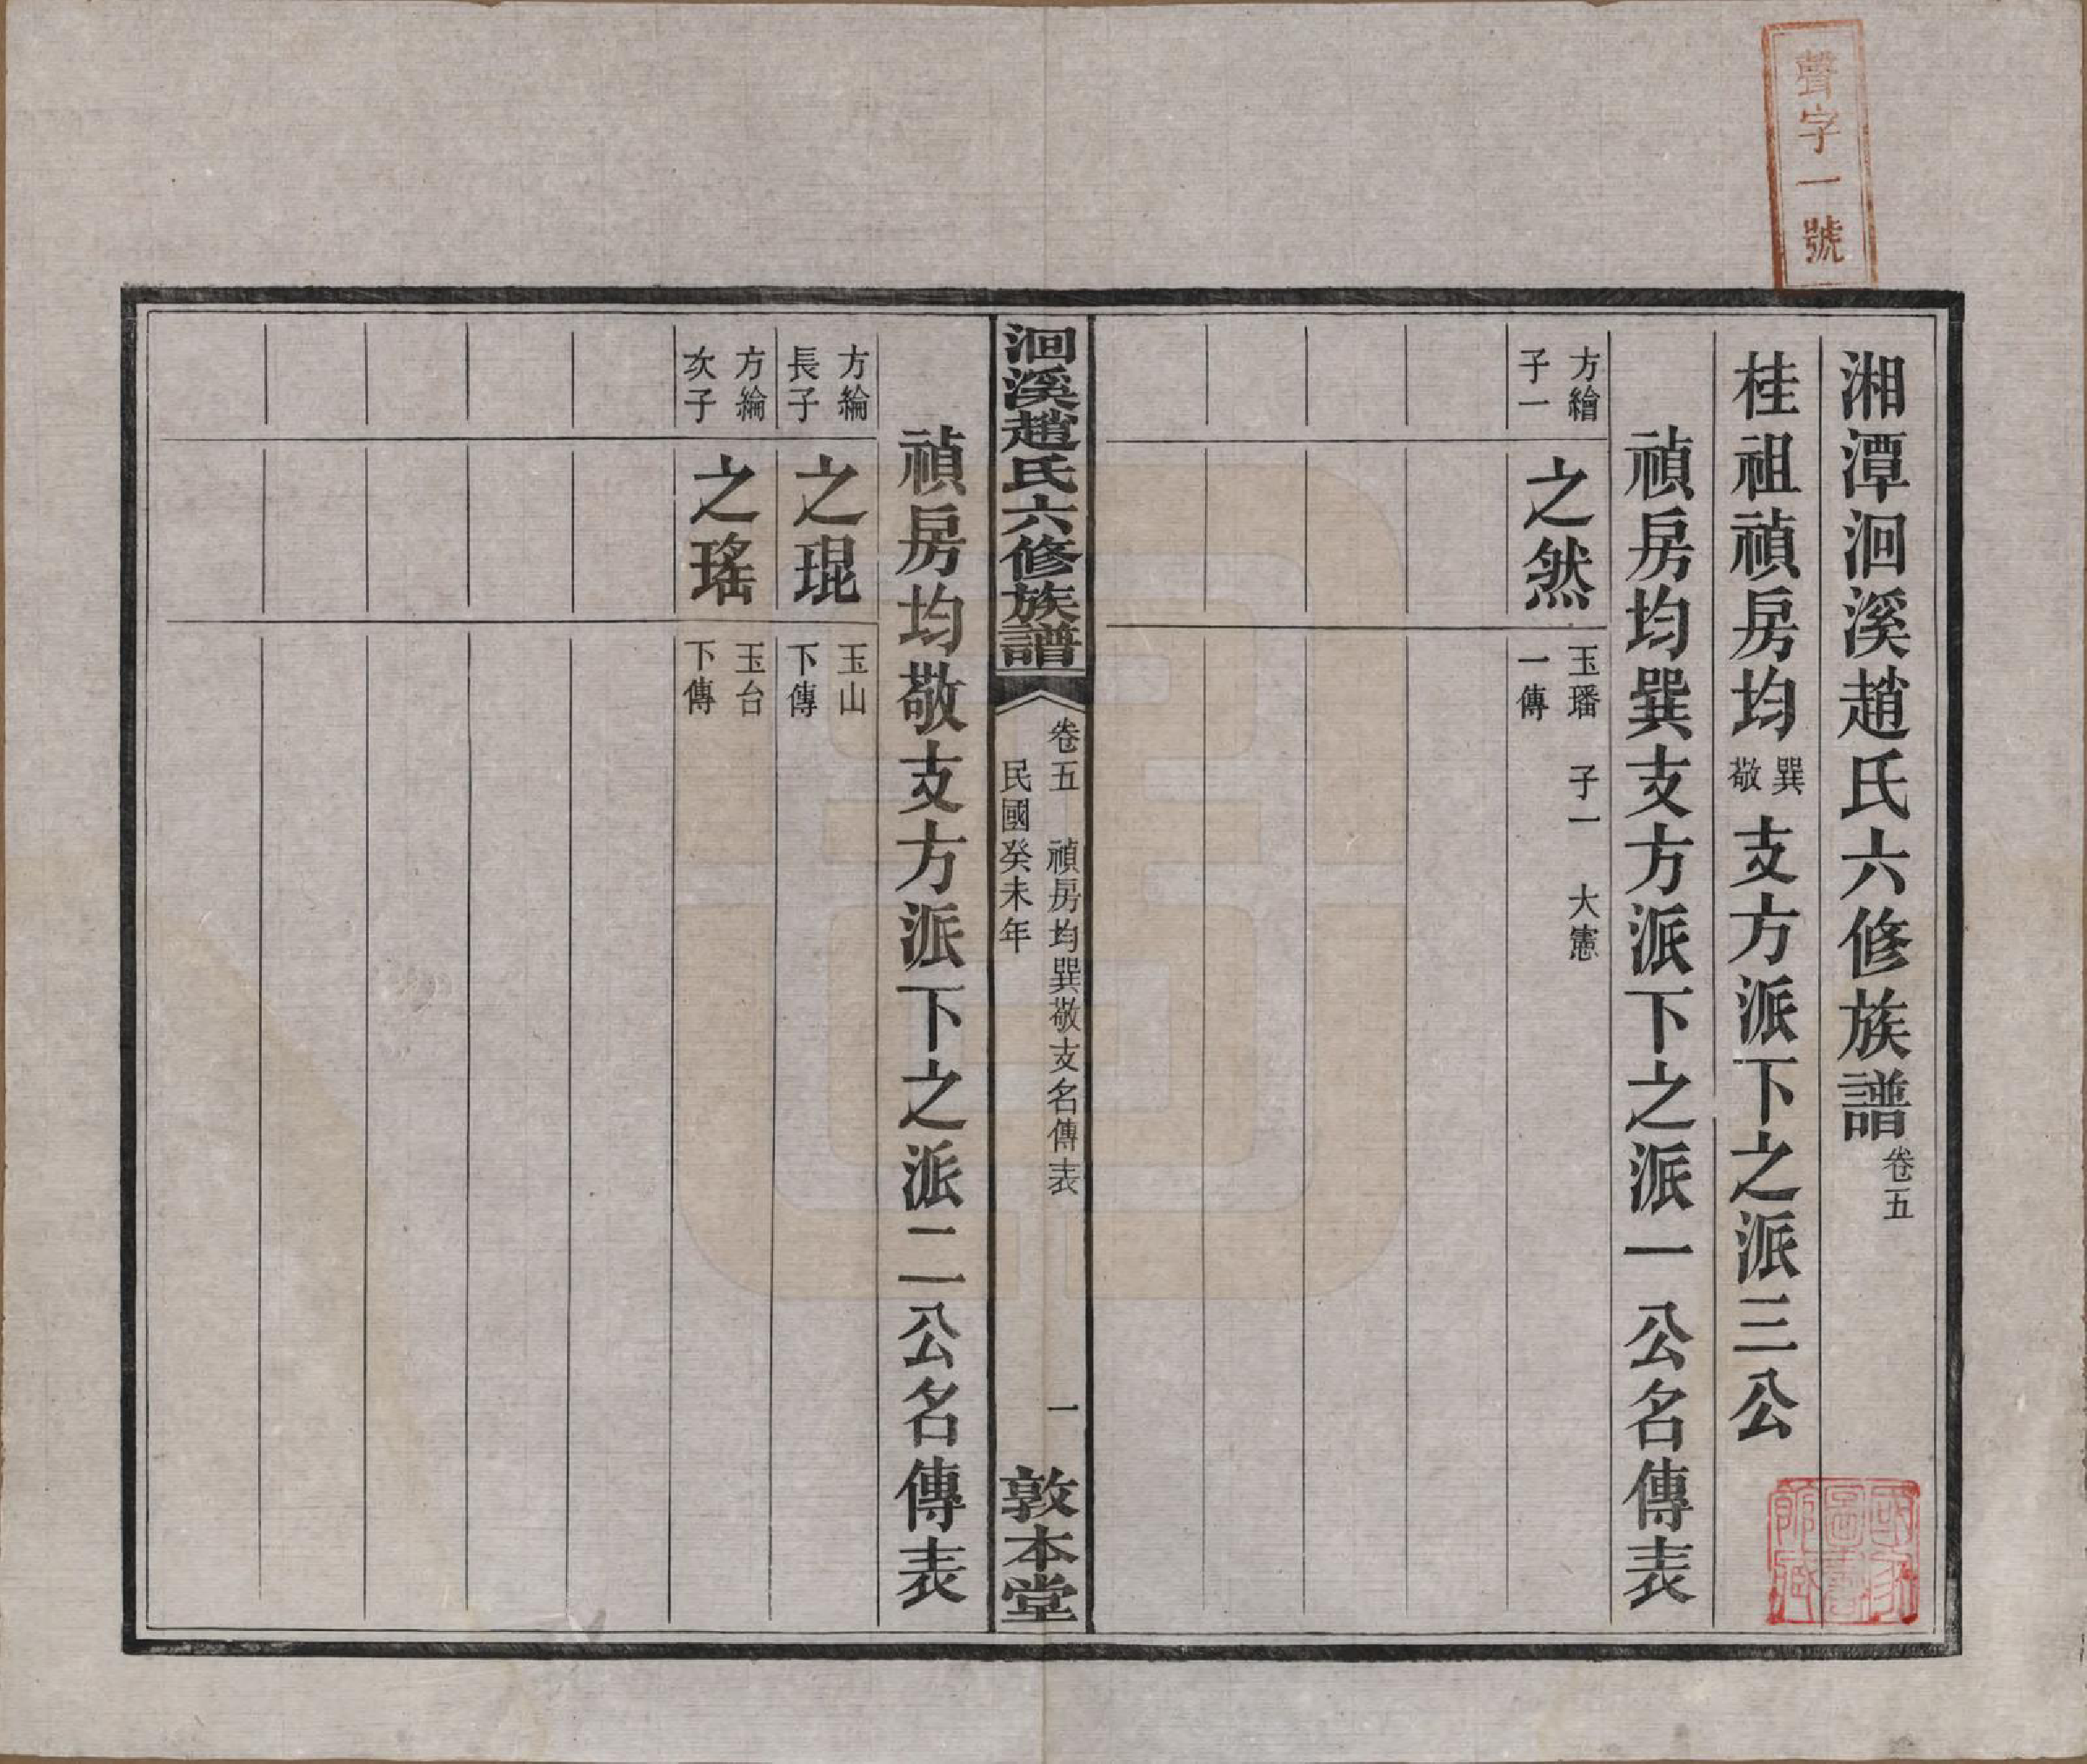 聲字一號
湘潭洄溪趙氏六修族譜卷五
桂祖禎房均巽敬支方派下之派三公
禎房均巽支方派下之派一公名傳表
方繪子一
之然
玉璠一傳 子一 大憲
洄溪趙氏六修族譜
卷五 禎房均巽敬支名傳表 一
民國癸未年
敦本堂
禎房均敬支方派下之派二公名傳表
方綸長子
之琨
玉山下傳
方綸次子
之瑤
玉台下傳